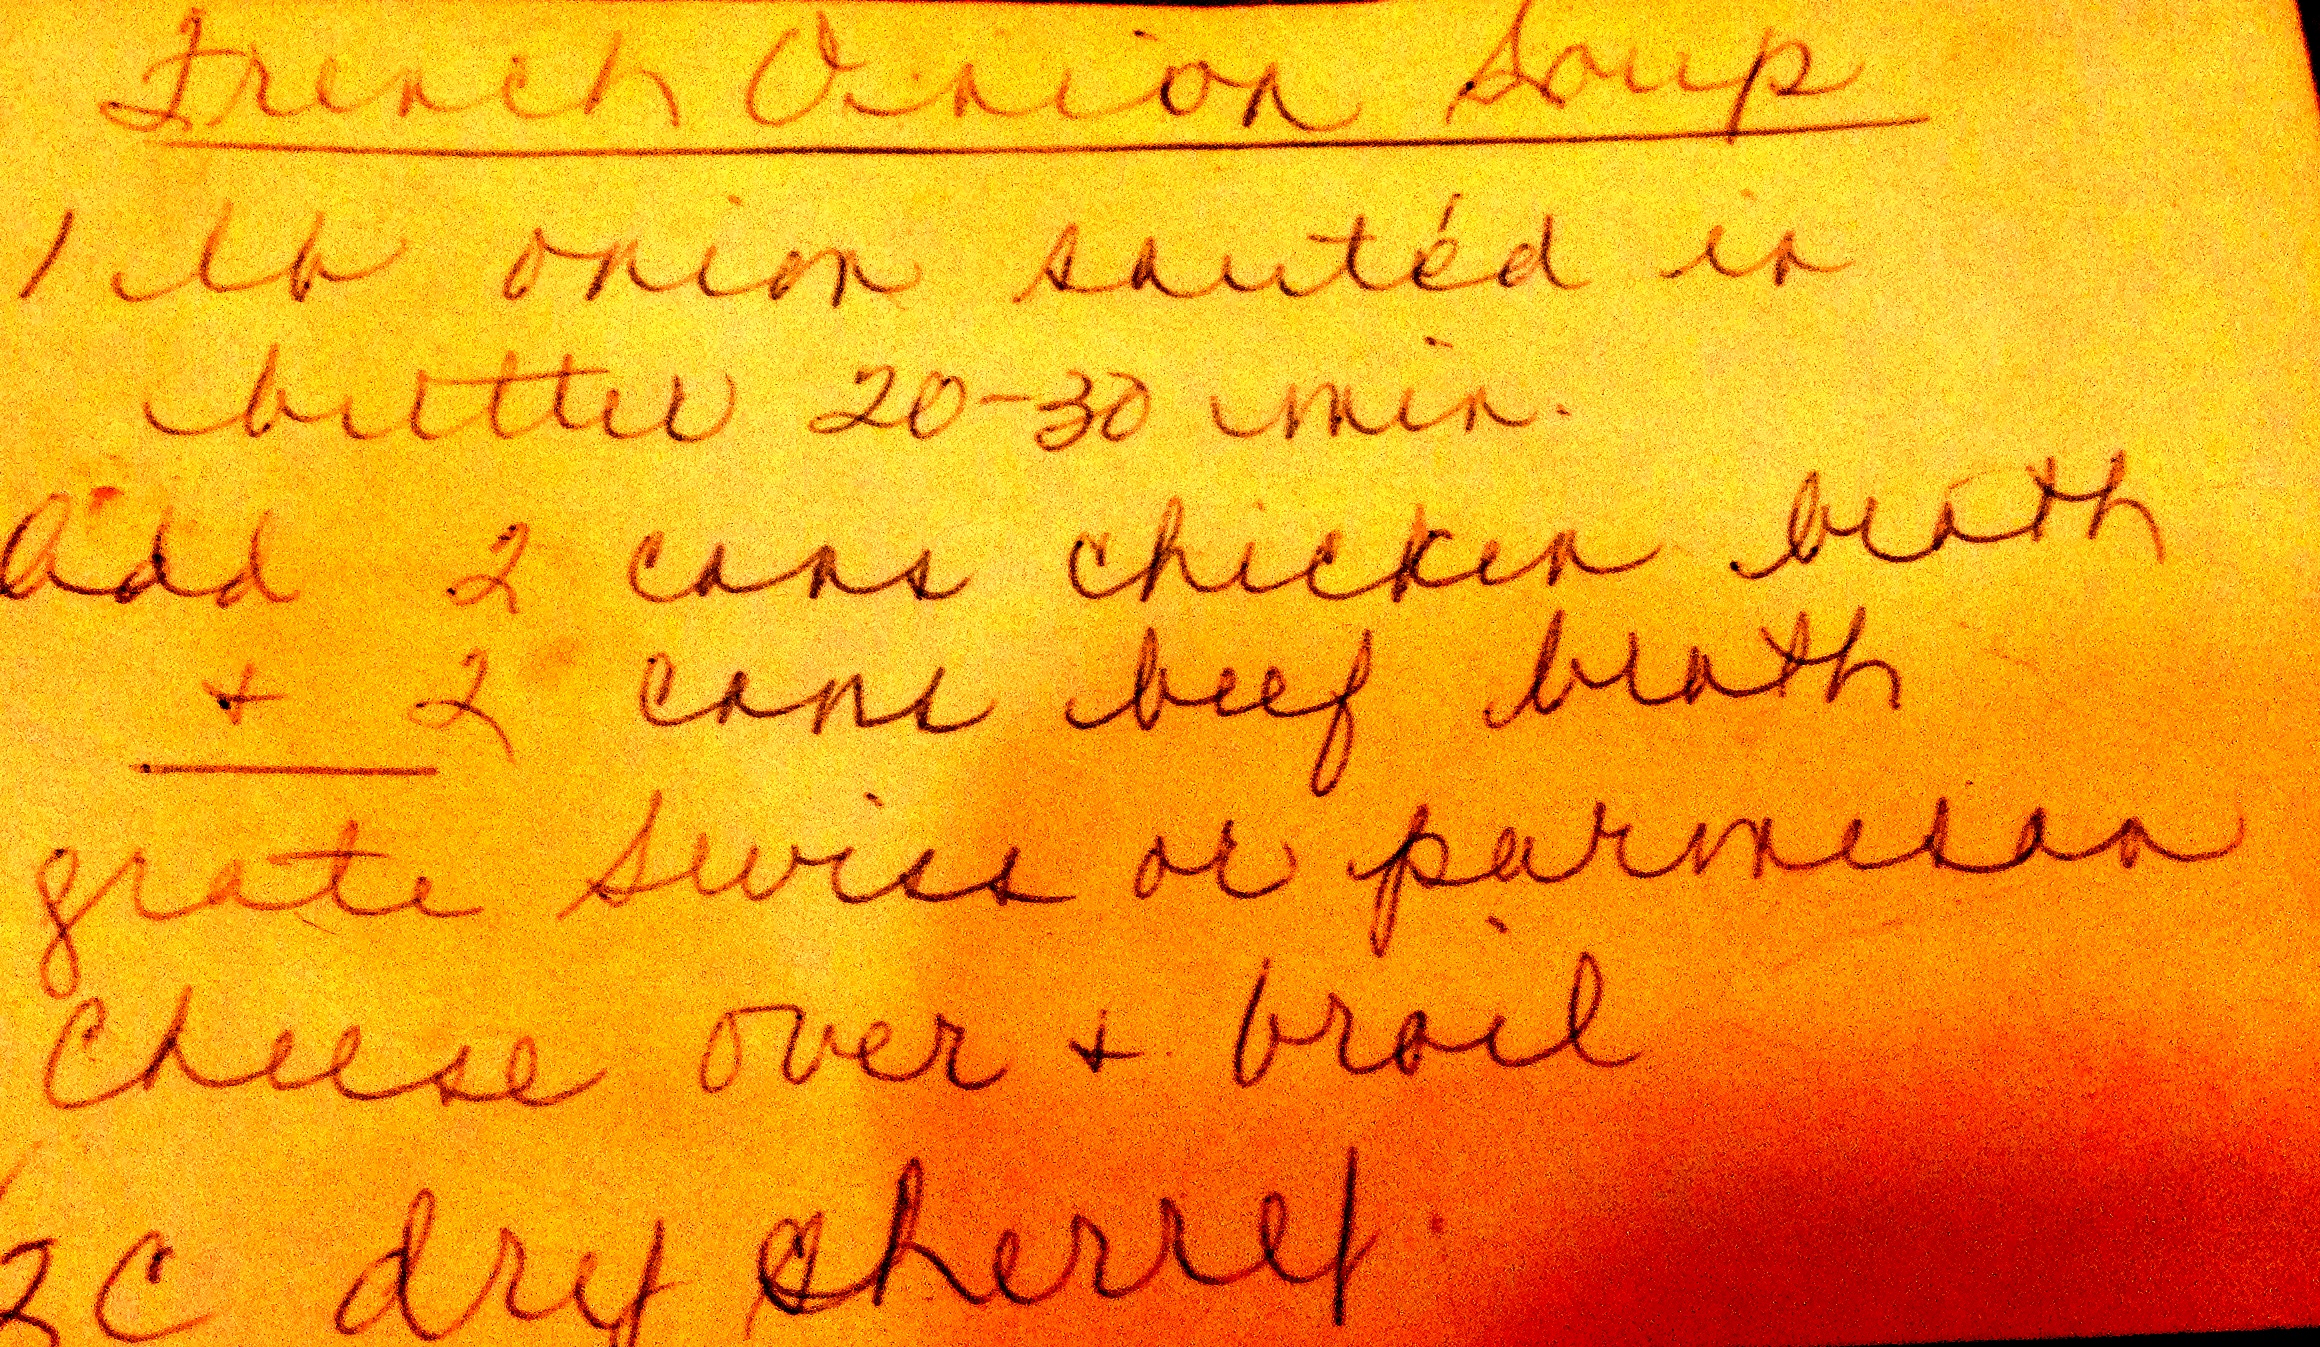 French Onion Soup
1 lb onion sautéd in
butter 20-30 min.
Add 2 cans chicken broth
+ 2 cans beef broth
grate Swiss or parmesan
Cheese over + broil
C dry sherry